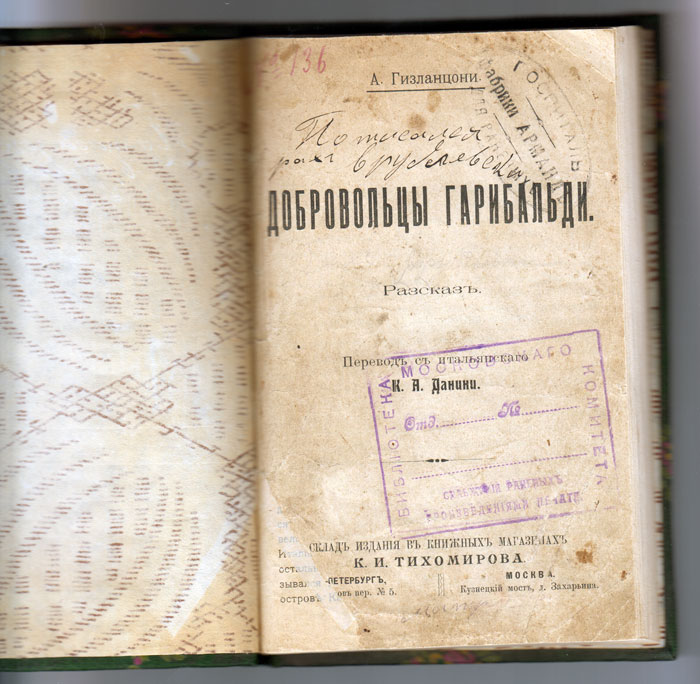 136
А. Гизланцони.
ГОСПИТАЛЬ
Фабрики АРМАНД
ДОБРОВОЛЬЦЫ ГАРИБАЛЬДИ.
Разсказъ.
Переводъ съ итальянскаго
К. А. Данини.
БИБЛІОТЕКА МОСКОВСКАГО КОМИТЕТА
Отд. №
СКЛАДЪ ИЗДАНІЯ ВЪ КНИЖНЫХЪ МАГАЗИНАХЪ
К. И. ТИХОМИРОВА.
ПЕТЕРБУРГЪ,
пер. № 5.
МОСКВА.
Кузнецкій мостъ, д. Захарьина.
осталь
зывал
островъ